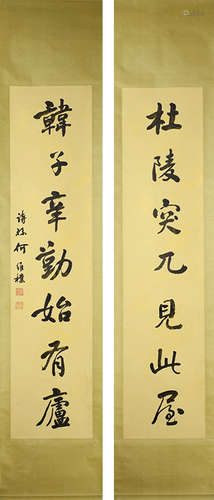 杜陵突兀見此屋
韓子辛勤始有廬
詩孫何維樸